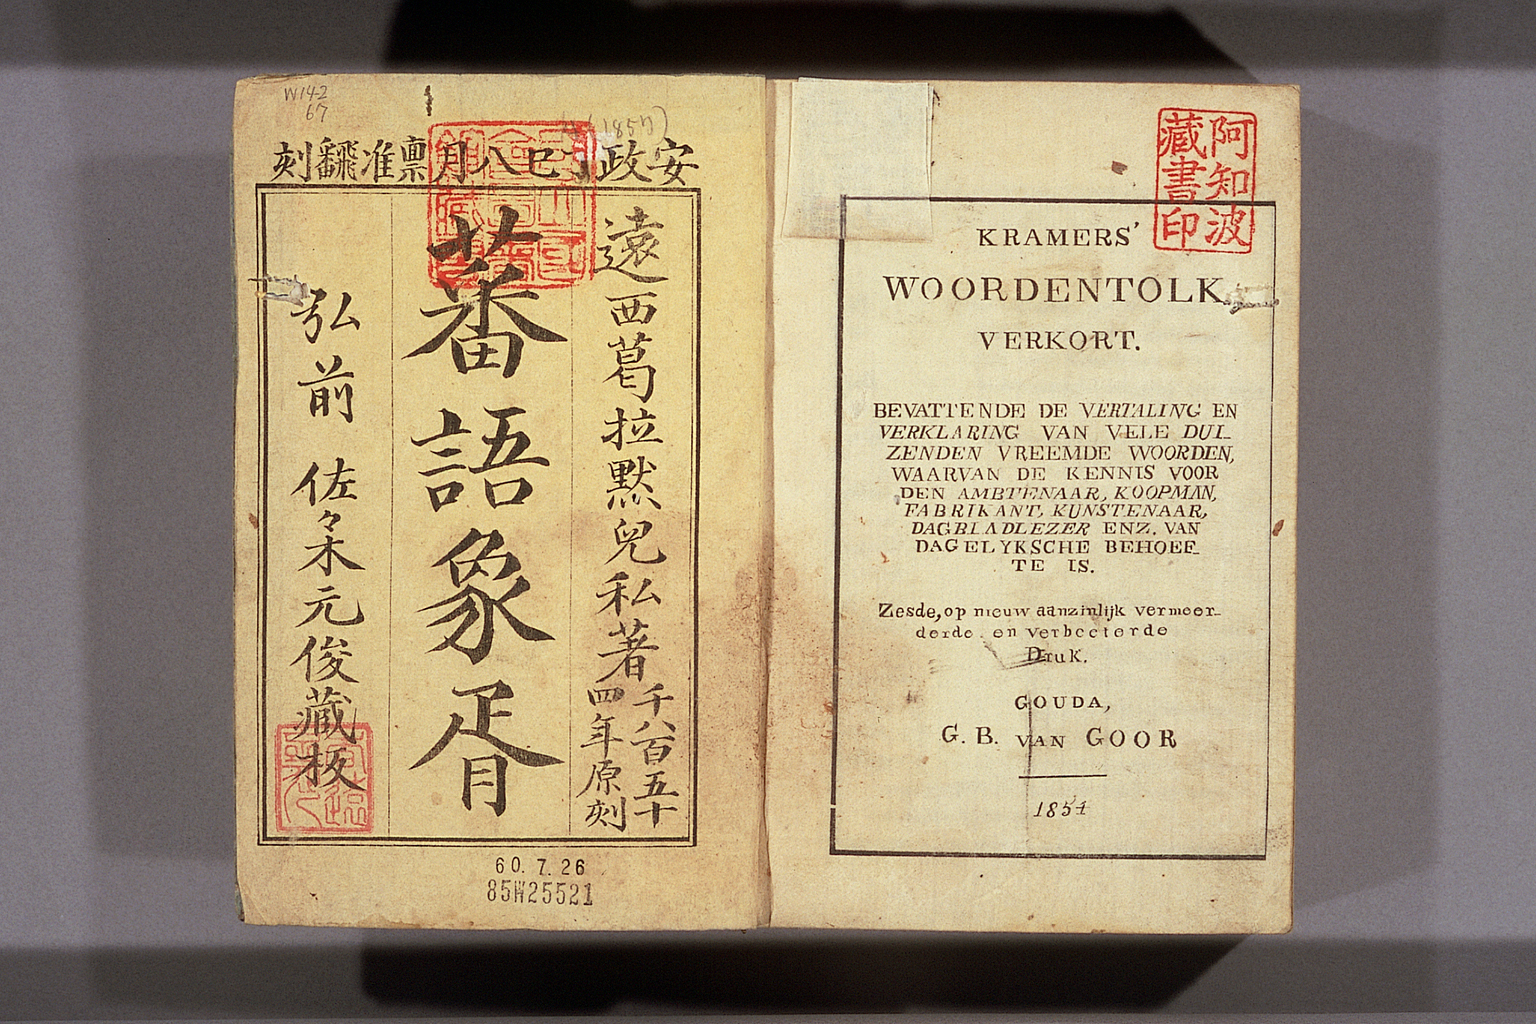 W142
67
(1857)
安政丁巳八月稟准翻刻
遠西葛拉黙兒私著
千八百五十
四年原刻
蕃語象胥
弘前 佐々木元俊藏板
60. 7. 26
85W25521
阿知波
藏書印
KRAMERS'
WOORDENTOLK
VERKORT.
BEVATTENDE DE VERTALING EN
VERKLARING VAN VELE DUI-
ZENDEN VREEMDE WOORDEN,
WAARVAN DE KENNIS VOOR
DEN AMBTENAAR, KOOPMAN,
FABRIKANT, KUNSTENAAR,
DAGBLADLEZER ENZ. VAN
DAGELYKSCHE BEHOEF-
TE IS.
Zesde, op nieuw aanzinlijk vermeer-
derde en verbeeterde
Druk.
GOUDA,
G. B. VAN GOOR
1854